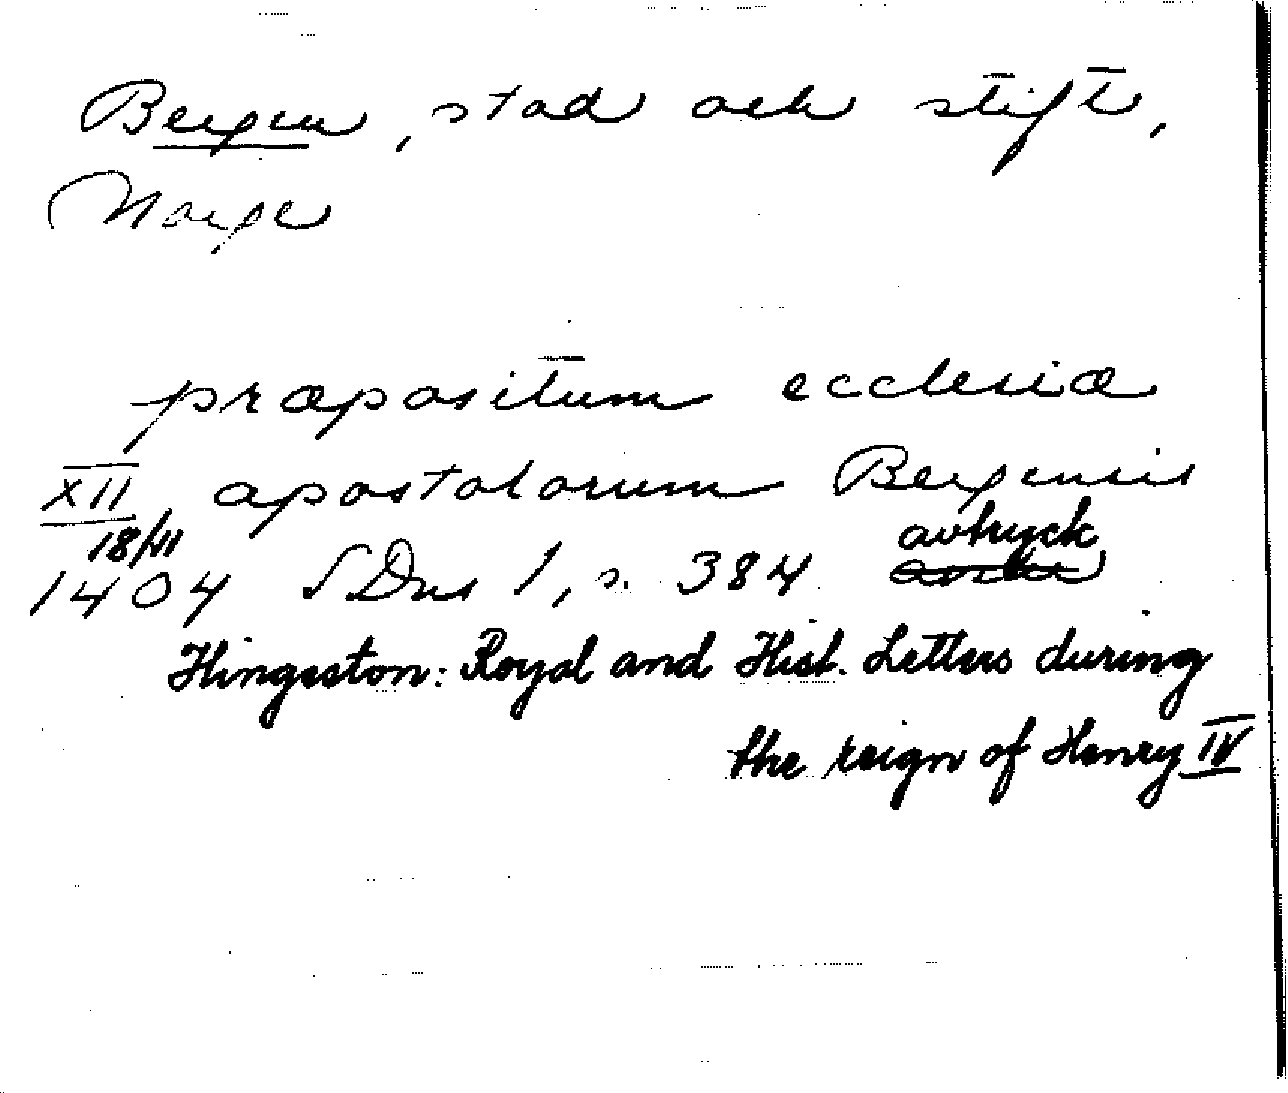 Bergen, stad och stift,
Norge
præpositum ecclesiæ
XII apostolorum Bergensis
18/11 avtryck
1404 SDns 1, s. 384
Hingeston: Royal and Hist. Letters during
the reign of Henry IV